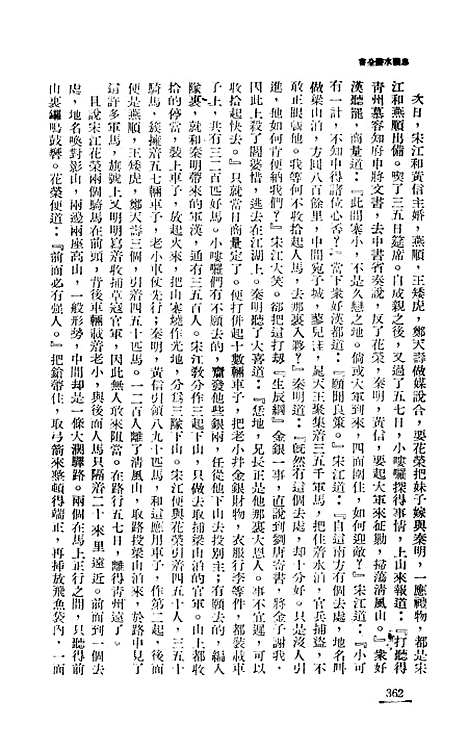 忠義水滸全書
次日，宋江和黃信主婚，燕順，王矮虎，鄭天壽做媒說合，要花榮把妹子嫁與秦明，一應禮物，都是宋
江和燕順出備。喫了三五日筵席。自成親之後，又過了五七日，小嘍囉探得事情，上山來報道：『打聽得
青州慕容知府申將文書，去中書省奏說，反了花榮，秦明，黃信，要起大軍來征勦，掃蕩清風山。』衆好
漢聽罷，商量道：『此間小寨，不是久戀之地。倘或大軍到來，四面圍住，如何迎敵？』宋江道：『小可
有一計，不知中得諸位心否？』當下衆好漢都道：『願聞良策。』宋江道：『自這南方有個去處，地名叫
做梁山泊，方圓八百餘里，中間宛子城，蓼兒洼，晁天王聚集着三五千軍馬，把住着水泊，官兵捕盜，不
敢正眼覷他。我等何不收拾起人馬，去那裏入夥？』秦明道：『旣然有這個去處，却十分好。只是沒人引
進，他如何肯便納我們？』宋江大笑。却把這打刼『生辰綱』金銀一事，直說到劉唐寄書，將金子謝我，
因此上殺了閻婆惜，逃去在江湖上。秦明聽了大喜道：『恁地，兄長正是他那裏大恩人。事不宜遲，可以
收拾起快去。』只就當日商量定了。便打併起十數輛車子，把老小幷金銀財物，衣服行李等件，都裝載車子
上，共有三二百匹好馬。小嘍囉們有不願去的，齎發他些銀兩，任從他下山去投別主；有願去的，編入
隊裏，就和秦明帶來的軍漢，通有三五百人。宋江敎分作三起下山，只做去收捕梁山泊的官軍。山上都收
拾的停當，裝上車子，放起火來，把山寨燒作光地，分爲三隊下山。宋江便與花榮引着四五十人，三五十
騎馬，簇擁着五七輛車子，老小車仗先行；秦明，黃信引領八九十匹馬，和這應用車子，作第二起；後面
便是燕順，王矮虎，鄭天壽三個，引着四五十匹馬。一二百人離了清風山，取路投梁山泊來，於路中見了
這許多軍馬，旗號上又明明寫着收捕草寇官軍，因此無人敢來阻當。在路行五七日，離得青州遠了。
且說宋江花榮兩個騎馬在前頭，背後車輛載着老小，與後面人馬只隔着二十來里遠近。前面到一個去
處，地名喚對影山，兩邊兩座高山，一般形勢，中間却是一條大濶驛路。兩個在馬上正行之間，只聽得前
山裏鑼鳴鼓響。花榮便道：『前面必有强人。』把鎗帶住，取弓箭來整頓得端正，再插放飛魚袋內，一面
362